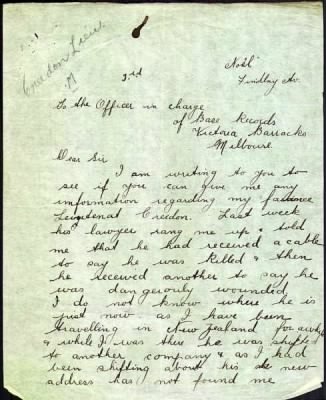 Creedon Lieu.
M
3rd
Noël
Lindsay Av.
To the Officer in charge
of Base Records
Victoria Barracks
Melbourne
Dear Sir
I am writing to you to
see if you can give me any
information regarding my
Creedon. Last week
his lawyer rang me up & told
me that he had received a cable
to say he was killed & then
he received another to say he
was dangerously wounded
I do not know where he is
just now as I have been
travelling in New Zealand for awhile
& while I was there he was shifted
to another company & as I had
been shifting about his new
address has not found me